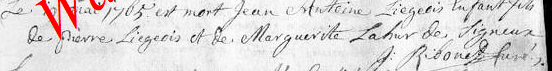 Le mai 1765 est mort Jean Antoine Liegeois Enfant fils
de pierre Liegeois et de Marguerite Lahur de Signeux
Curé